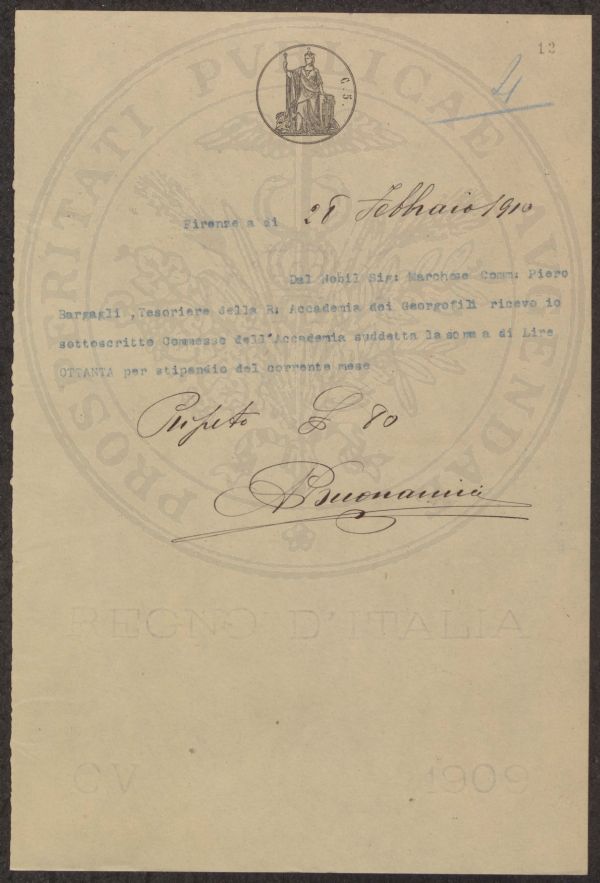 12
4
PROSPERITATI PVBLICAE AVGENDAE
C. 5.
Firenze a di 28 Febbraio 1910
Dal Nobil Sig: Marchese Comm: Piero
Bargagli ,Tesoriere della R: Accademia dei Georgofili ricevo io
sottoscritto Commesso dell'Accademia suddetta la somma di Lire
OTTANTA per stipendio del corrente mese
Ripeto £ 80
Buonamici
REGNO D'ITALIA
CV 1909